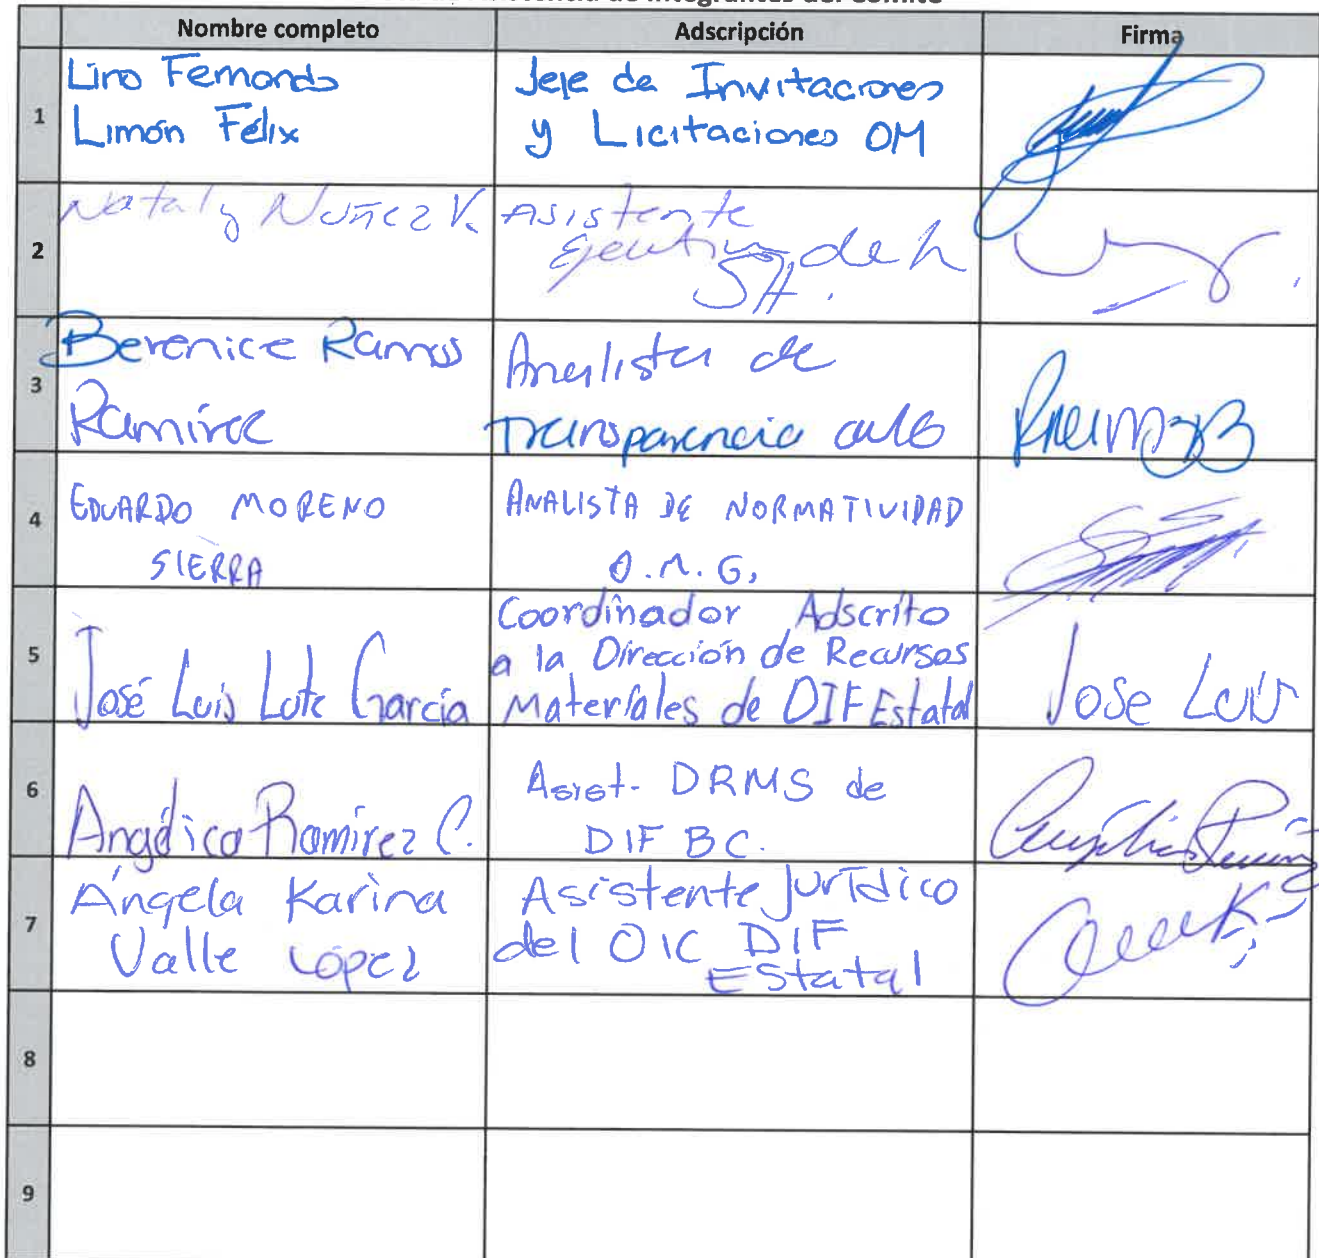 de integrantes del Comité
Nombre completo Adscripción Firma
1
Lino Fernando
Limón Félix
Jefe de Invitaciones
y Licitaciones OM
2
Nataly Nuñez V.
Asistente
Ejecutiva de la
3
Berenice Ramos
Ramírez
Analista de
Transparencia
4
EDUARDO MORENO
SIERRA
ANALISTA DE NORMATIVIDAD
O.M.G.
5
José Luis García
Coordinador Adscrito
a la Dirección de Recursos
Materiales de DIF Estatal
Jose Luis
6
Angélica Ramirez C.
Asist. DRMS de
DIF BC.
7
Ángela Karina
Valle López
Asistente Jurídico
del OIC DIF
Estatal
8
9